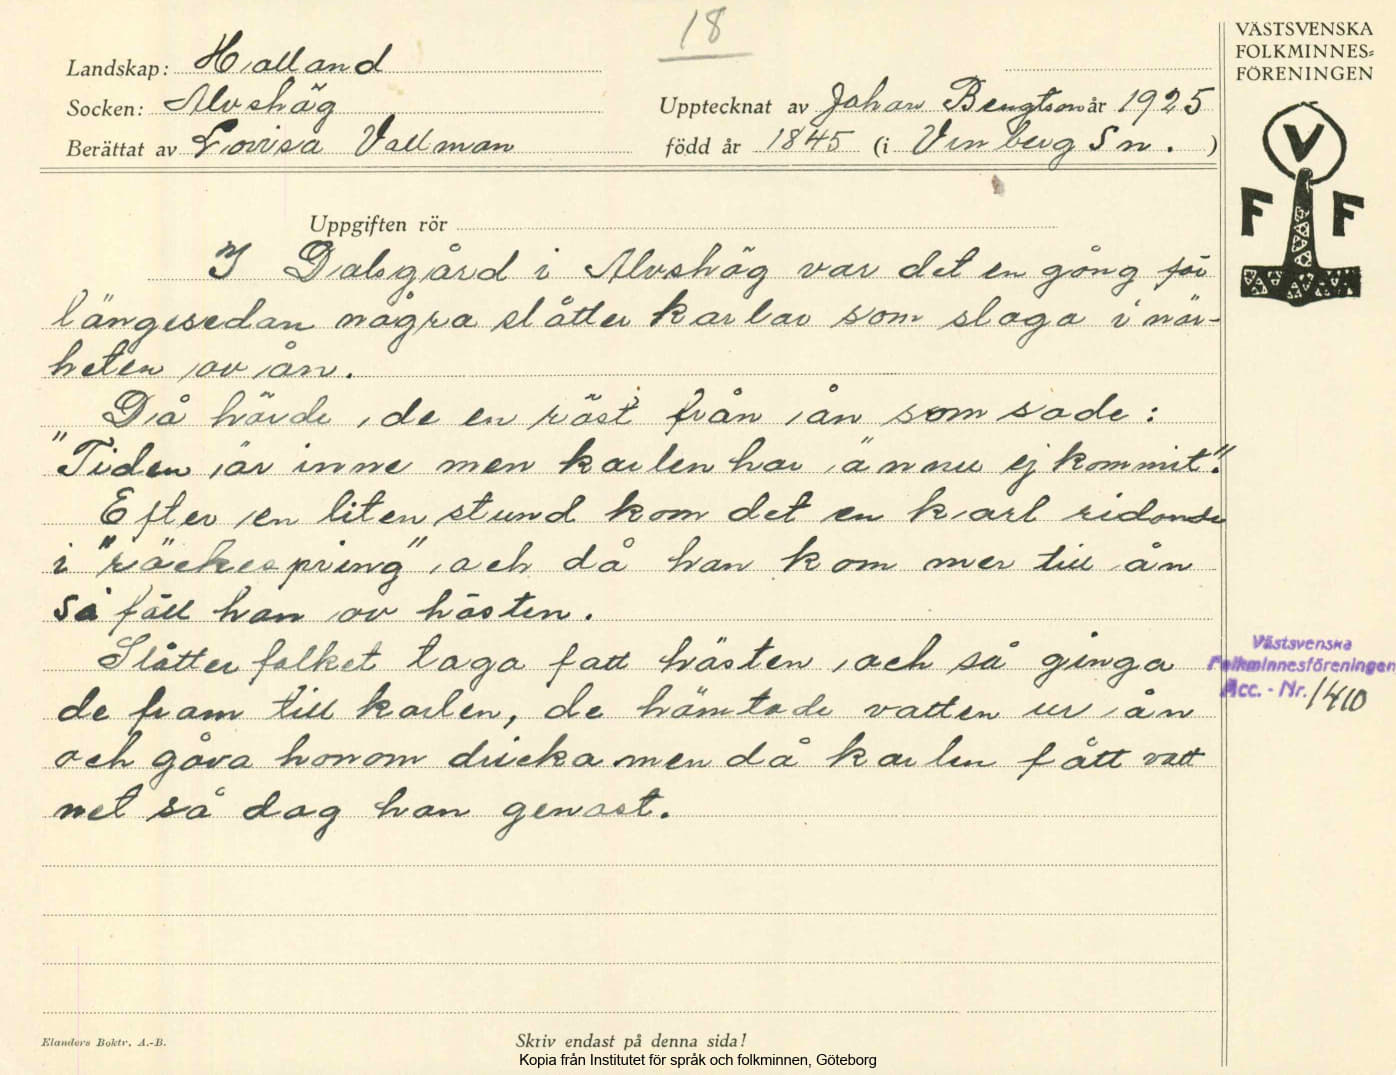 18
VÄSTSVENSKA
FOLKMINNES=
FÖRENINGEN
Landskap: Halland
Socken: Alvshög
Upptecknat av Johan Bengtson år 1925
Berättat av Lovisa Vallman
född år 1845 (i Vinberg Sn. )
V
F F
Uppgiften rör
I Dalsgård i Alvshög var det en gång för
längesedan några slåtter karlar som sloga i när-
heten av ån.
Då hörde de en röst från ån som sade:
"Tiden är inne men karlen har ännu ej kommit."
Efter en liten stund kom det en karl ridande
i "räckespring" och då han kom mer till ån
så föll han av hästen.
Slåtter folket toga fatt hästen och så ginga
de fram till karlen, de hämtade vatten ur ån
och gåva honom dricka men då karlen fått vatt
net så dog han genast.
Västsvenska
Folkminnesföreningen
Acc. - Nr. 1410
Elanders Boktr. A.-B.
Skriv endast på denna sida!
Kopia från Institutet för språk och folkminnen, Göteborg